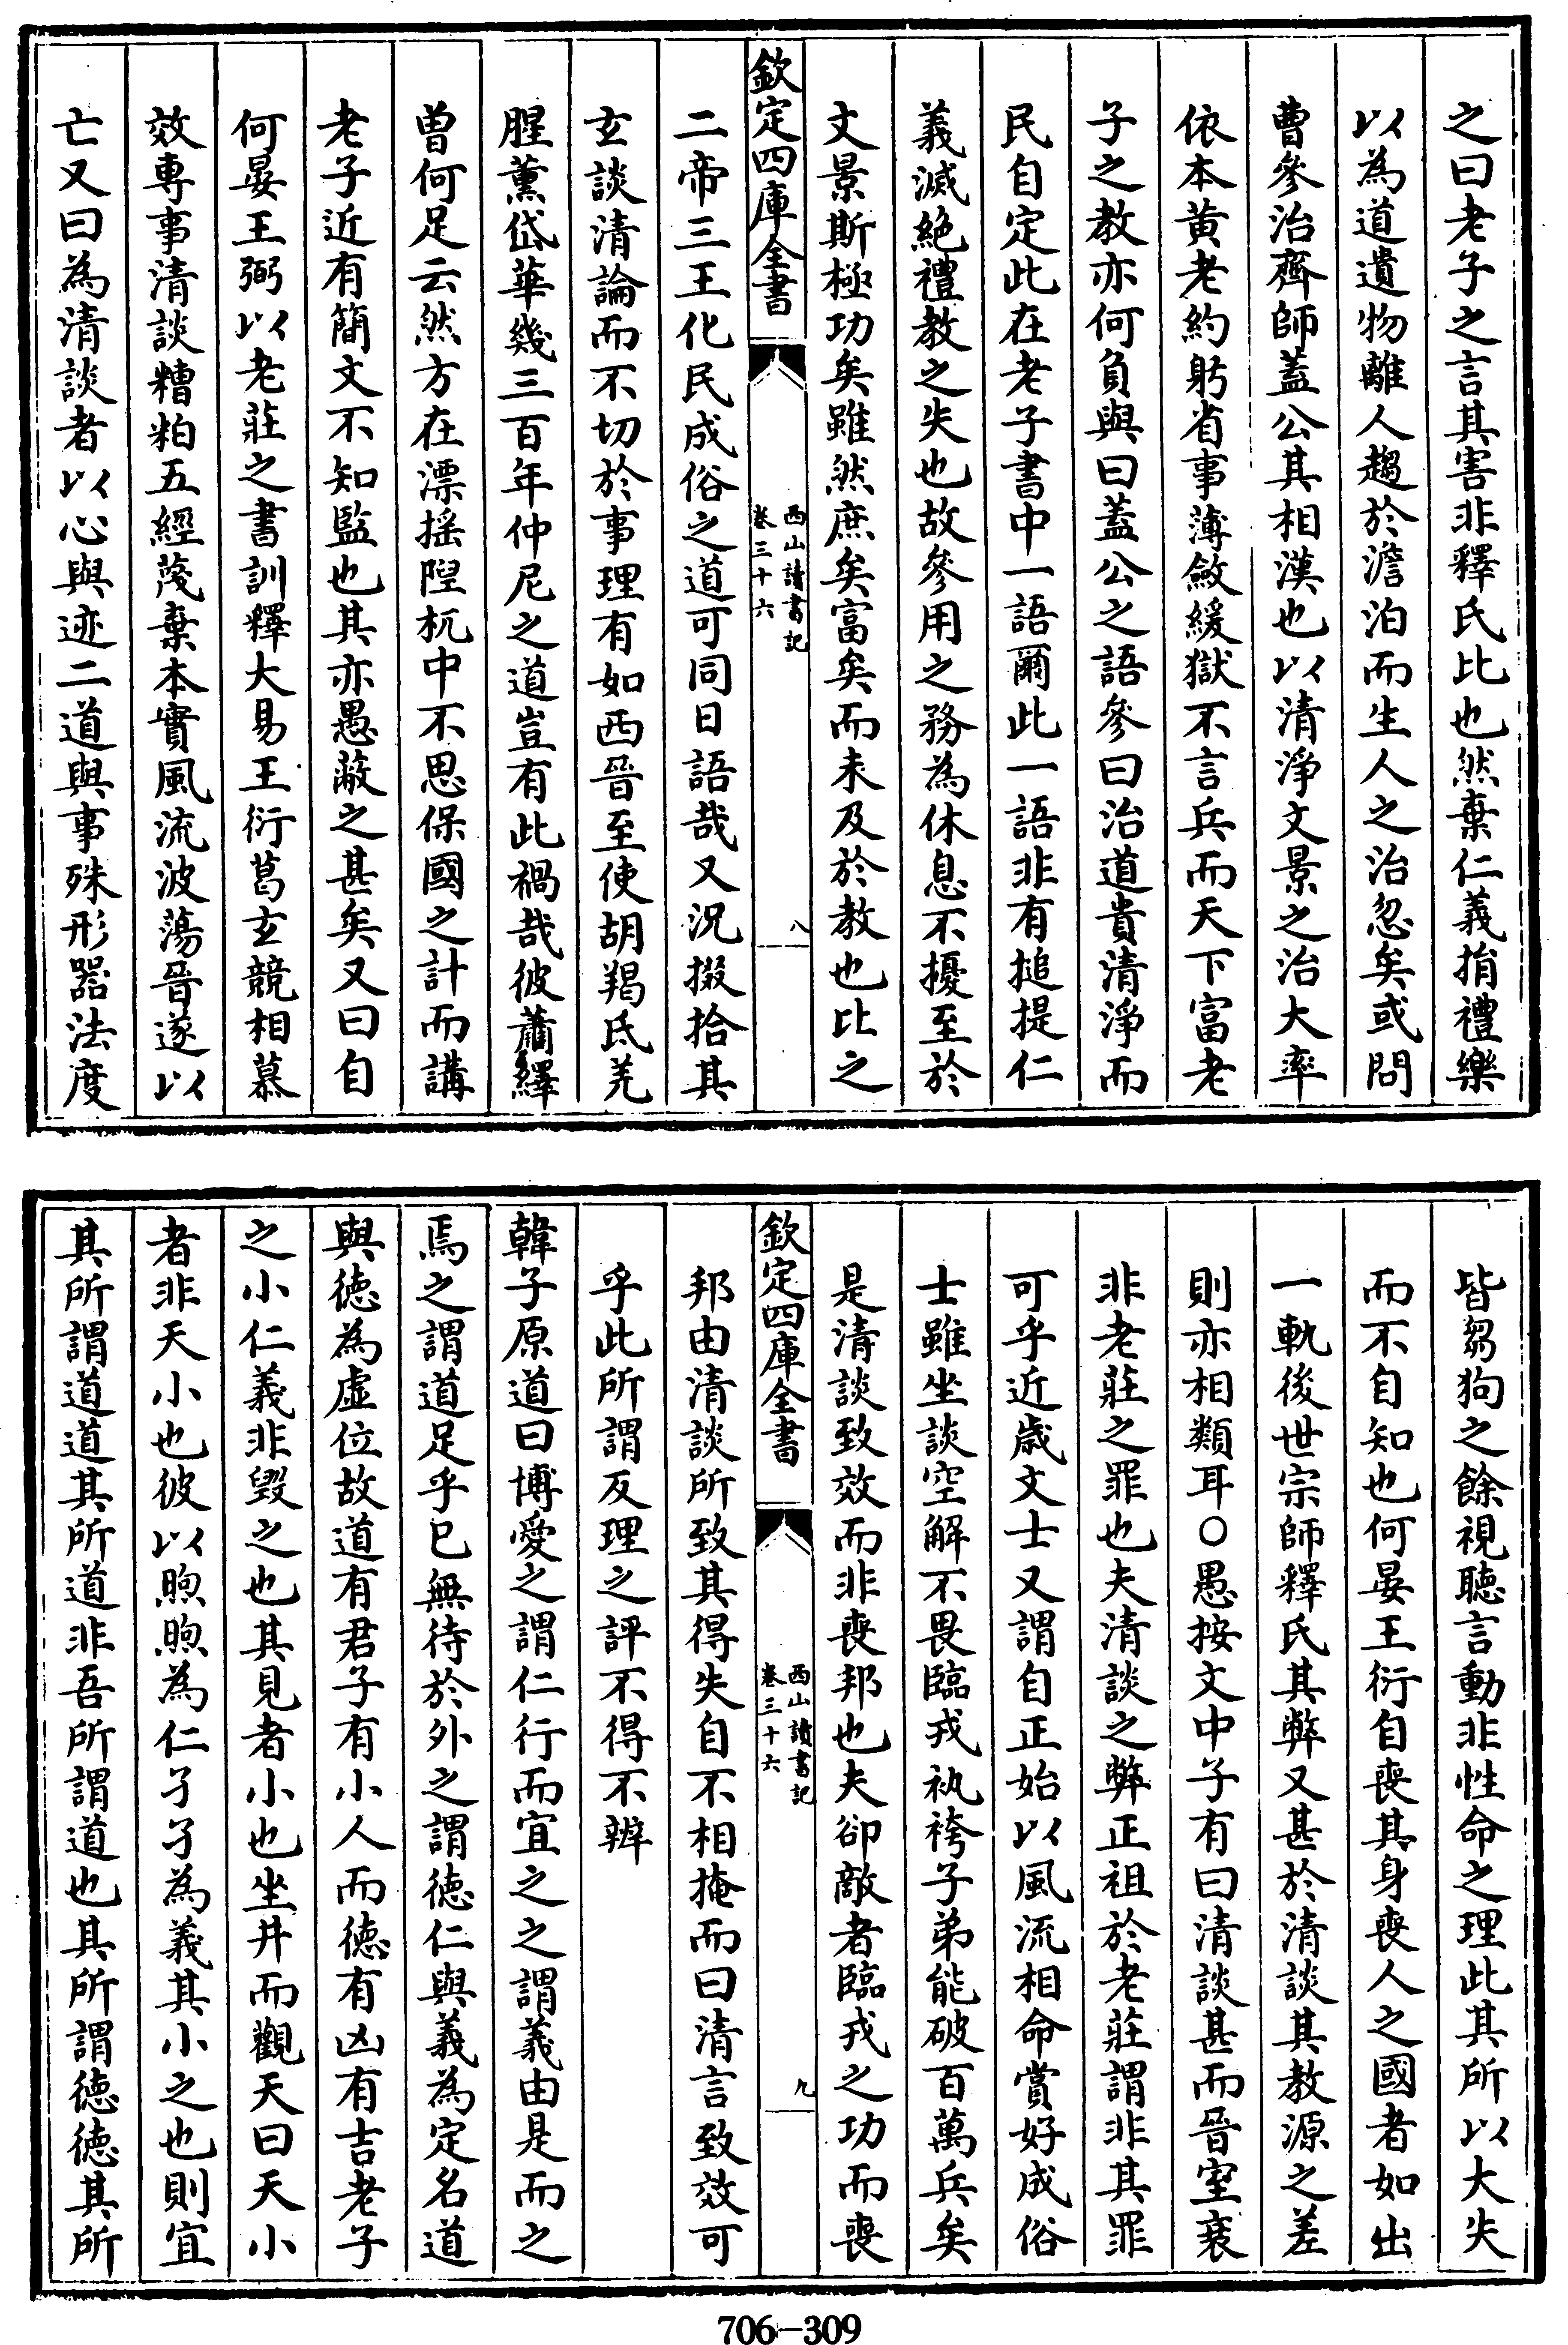 之曰老子之言其害非釋氏比也然棄仁義捐禮樂
以為道遺物離人趨於澹泊而生人之治忽矣或問
曹參治齊師蓋公其相漢也以清淨文景之治大率
依本黄老約躬省事薄斂緩獄不言兵而天下富老
子之教亦何負與曰蓋公之語參曰治道貴清淨而
民自定此在老子書中一語爾此一語非有搥提仁
義滅絶禮教之失也故參用之務為休息不擾至於
文景斯極功矣雖然庶矣富矣而未及於教也比之
欽定四庫全書
西山讀書記
卷三十六
八
二帝三王化民成俗之道可同日語哉又況掇拾其
玄談清論而不切於事理有如西晉至使胡羯氐羌
腥薰岱華幾三百年仲尼之道豈有此禍哉彼蕭繹
曽何足云然方在漂摇隉杌中不思保國之計而講
老子近有簡文不知監也其亦愚蔽之甚矣又曰自
何晏王弼以老莊之書訓釋大易王衍葛玄競相慕
效専事清談糟粕五經蔑棄本實風流波蕩晉遂以
亡又曰為清談者以心與迹二道與事殊形器法度
皆芻狗之餘視聴言動非性命之理此其所以大失
而不自知也何晏王衍自喪其身喪人之國者如出
一軌後世宗師釋氏其弊又甚於清談其教源之差
則亦相類耳○愚按文中子有曰清談甚而晉室衰
非老莊之罪也夫清談之弊正祖於老莊謂非其罪
可乎近歳文士又謂自正始以風流相命賞好成俗
士雖坐談空解不畏臨戎紈袴子弟能破百萬兵矣
是清談致效而非喪邦也夫卻敵者臨戎之功而喪
欽定四庫全書
西山讀書記
卷三十六
九
邦由清談所致其得失自不相掩而曰清言致效可
乎此所謂反理之評不得不辨
韓子原道曰博愛之謂仁行而宜之之謂義由是而之
焉之謂道足乎已無待於外之謂德仁與義為定名道
與德為虚位故道有君子有小人而德有凶有吉老子
之小仁義非毀之也其見者小也坐井而觀天曰天小
者非天小也彼以煦煦為仁孑孑為義其小之也則宜
其所謂道道其所道非吾所謂道也其所謂德德其所
706-309